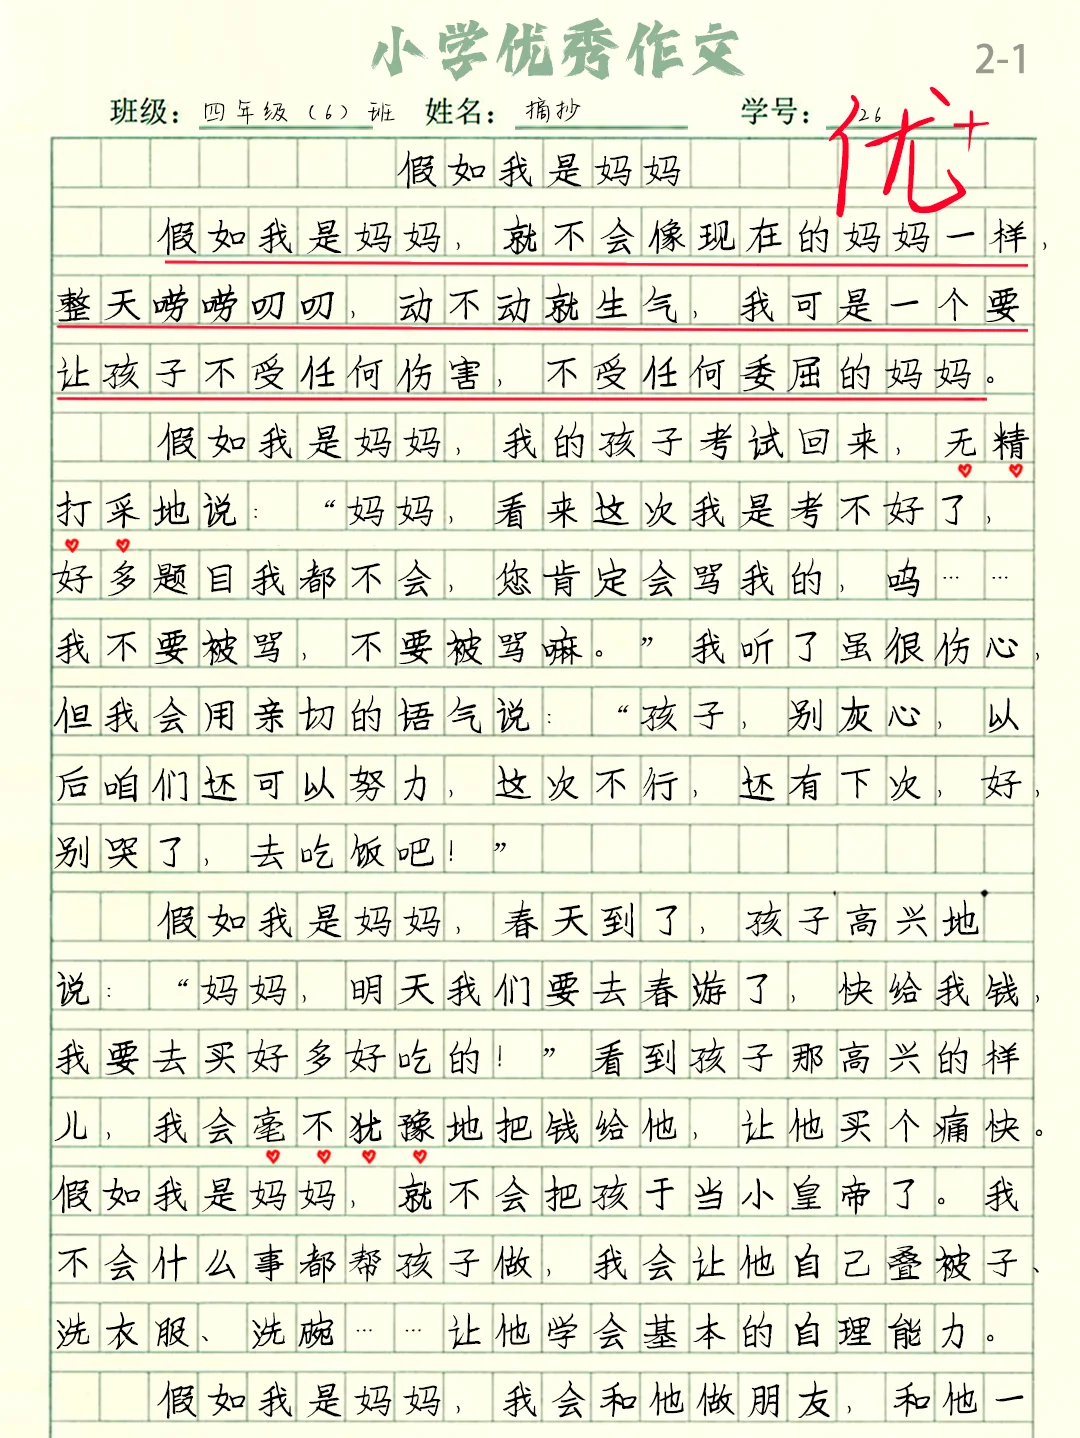 小学优秀作文
2-1
班级：四年级（6）班 姓名：摘抄 学号：26
优+
假如我是妈妈
假如我是妈妈，就不会像现在的妈妈一样，
整天唠唠叨叨，动不动就生气，我可是一个要
让孩子不受任何伤害，不受任何委屈的妈妈。
假如我是妈妈，我的孩子考试回来，无精
打采地说：“妈妈，看来这次我是考不好了，
好多题目我都不会，您肯定会骂我的，呜……
我不要被骂，不要被骂嘛。”我听了虽很伤心，
但我会用亲切的语气说：“孩子，别灰心，以
后咱们还可以努力，这次不行，还有下次，好，
别哭了，去吃饭吧！”
假如我是妈妈，春天到了，孩子高兴地
说：“妈妈，明天我们要去春游了，快给我钱，
我要去买好多好吃的！”看到孩子那高兴的样
儿，我会毫不犹豫地把钱给他，让他买个痛快。
假如我是妈妈，就不会把孩于当小皇帝了。我
不会什么事都帮孩子做，我会让他自己叠被子、
洗衣服、洗碗……让他学会基本的自理能力。
假如我是妈妈，我会和他做朋友，和他一